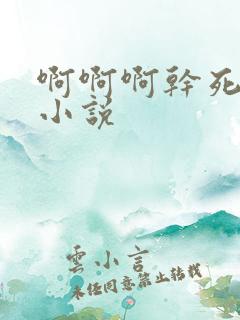 啊啊啊幹死
小說
雲小言
未任同意禁止转载